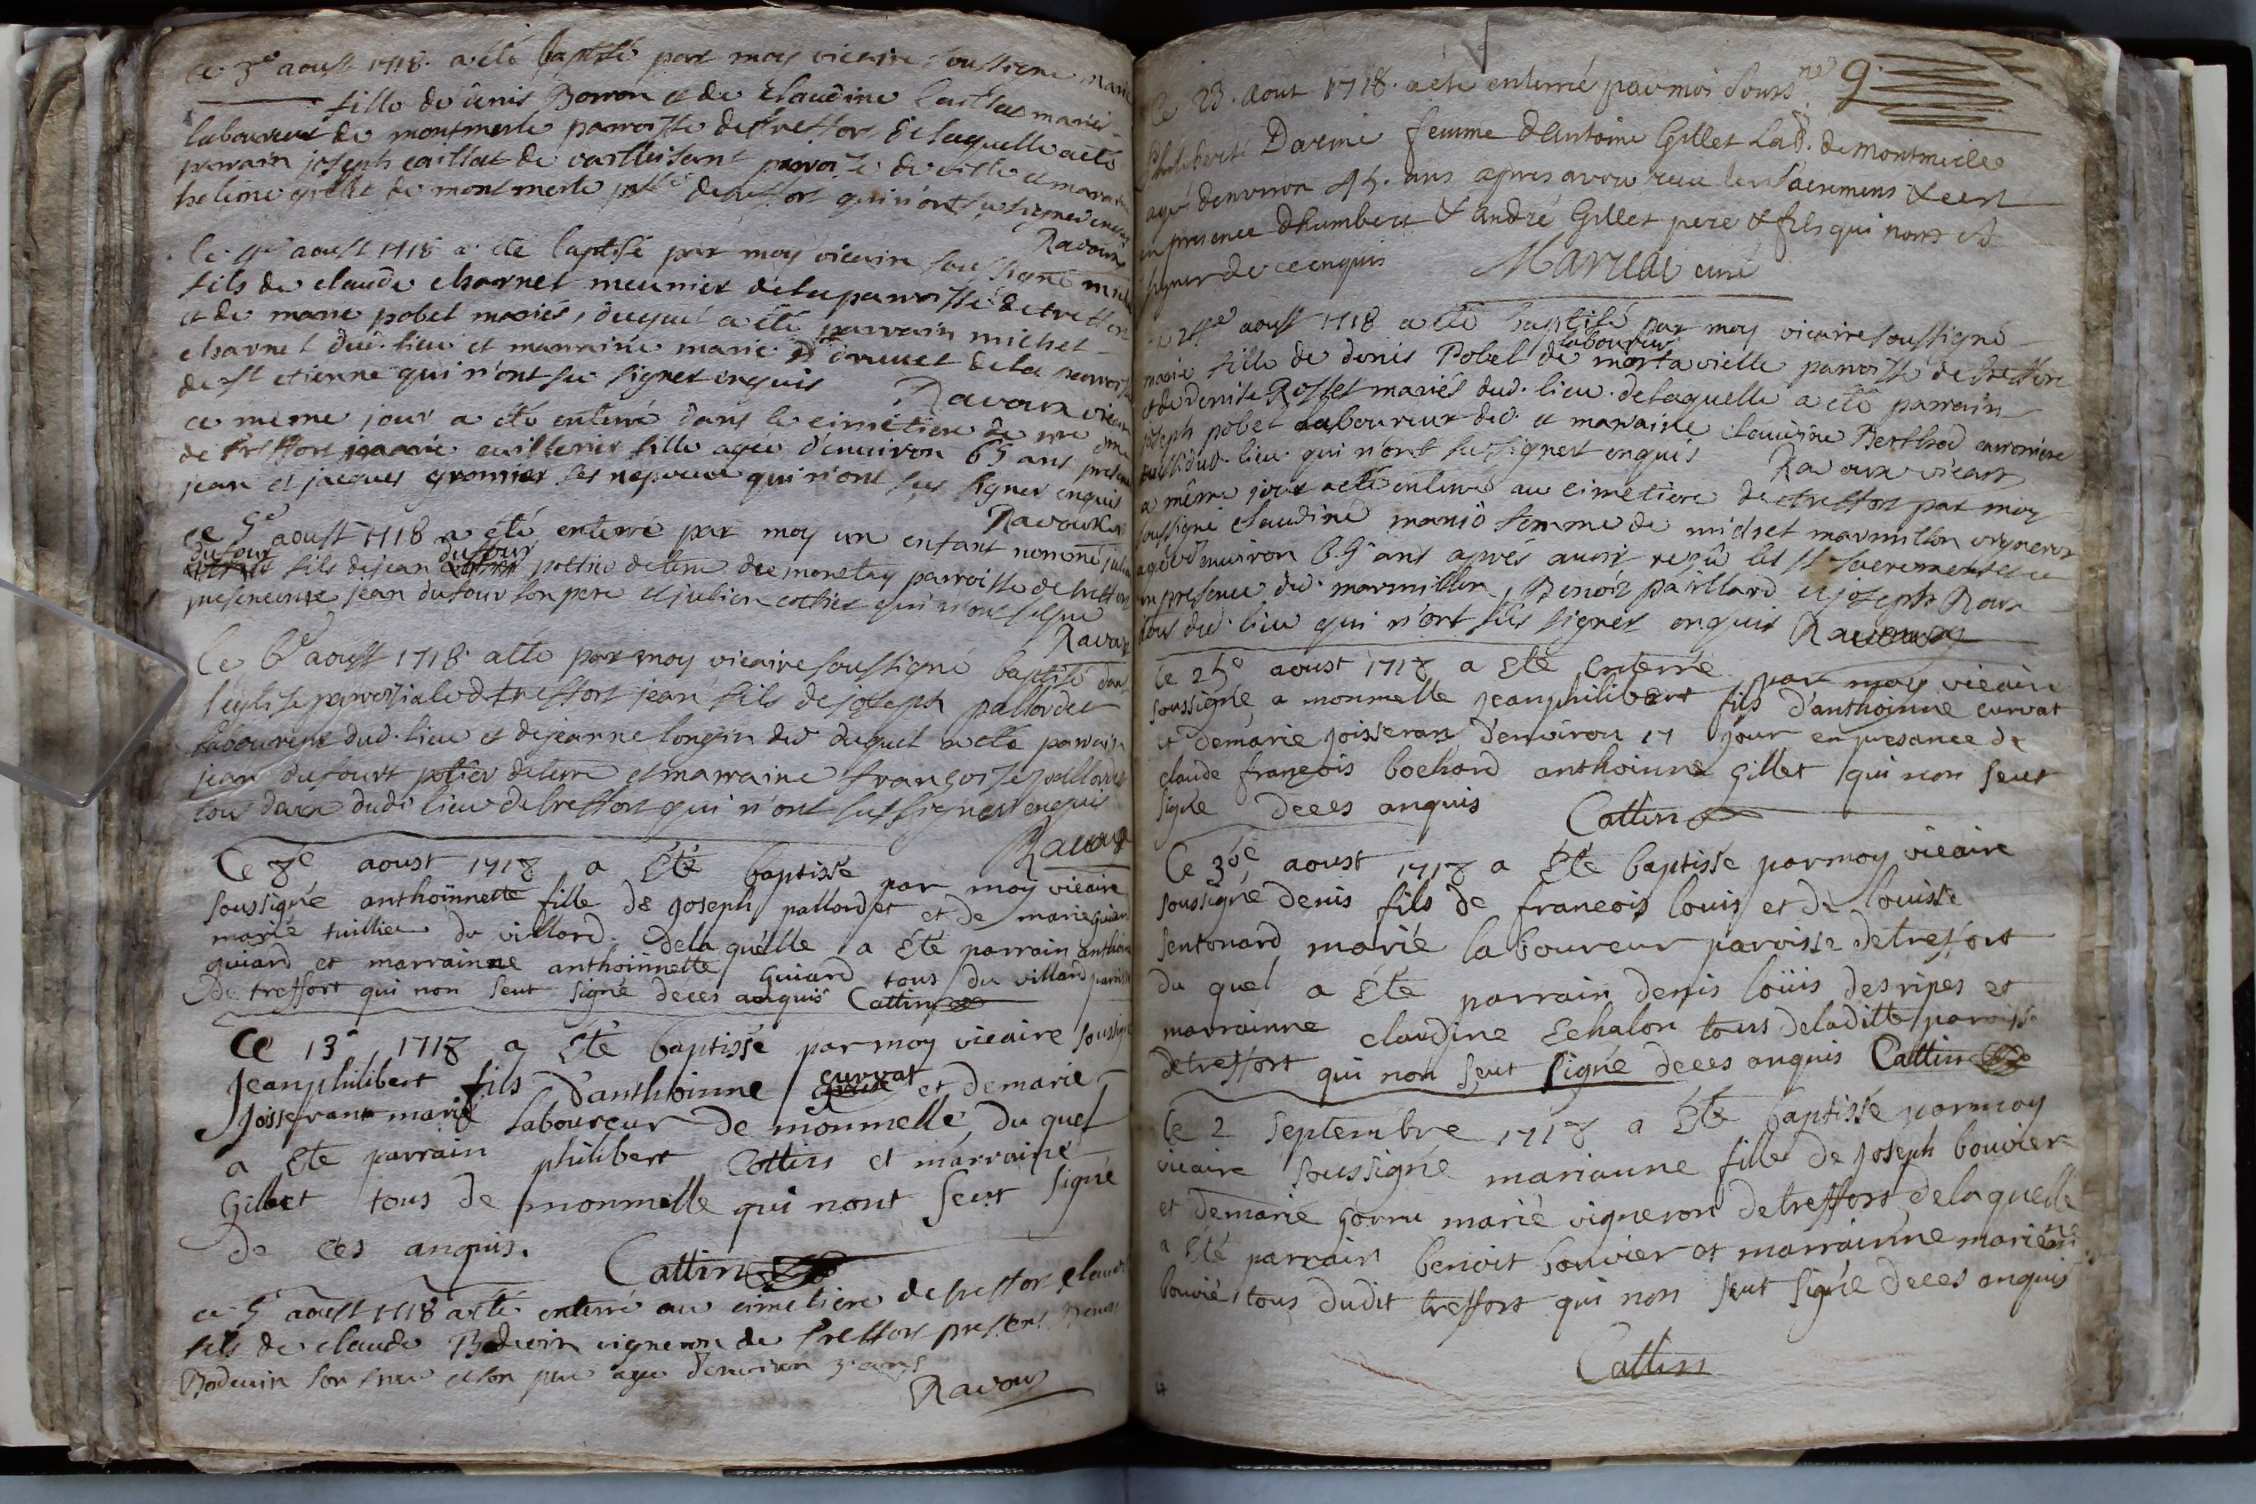 ce 3e aoust 1718. a été baptisé par moy vicaire soussigné marie
fille de denis Borron et de Claudine Caillat mariés
laboureur de montmerle parroisse de treffort de laquelle a été
parrain joseph caillat de parroisse de et maraine
heleine gillet de montmerle psse de treffort qui n'ont su signer enquis
Ravoux
le 4e aoust 1718 a été baptisé par moy vicaire soussigné
fils de claude charnet meunier de la parroisse de treffort
et de marie pobel mariés, duquel a été parrain michel
charnet dud. lieu et marraine marie de la parroisse
de st etienne qui n'ont su signer enquis Ravoux vicaire
ce meme jour a été enterré dans le cimetiere de
de treffort marie cuillerier fille agée d'environ 65 ans presens
jean et jacques gromier ses nepveux qui n'ont seu signer enquis
Ravoux
ce 5e aoust 1718 a été enterré par moy un enfant nommé julien
dufour dufour
fils de jean pottier de terre de monetay parroisse de treffort
presence jean dufour son pere et julien cottier qui n'ont su signer
Ravoux
Ce 6e aoust 1718 a été par moy vicaire soussigné baptisé dans
l'eglise parroissiale de treffort jean fils de joseph pallordet
laboureur dud. lieu et de jeanne longin duquel a été parrain
jean dufourt potier de terre et marraine françoise pallordet
tous dudi lieu de treffort qui n'ont sut signer enquis
Ravoux
Ce 8e aoust 1718 a Eté baptissé par moy vicaire
soussigné anthoinnette fille de Joseph pallordet et de marie guiard
marié tuillier du villard. de la quelle a Eté parrain anthoine
guiard et marrainne anthoinnette guiard tous du villard parroisse
De treffort qui non seut signé deces anquis Cattin
Ce 13e 1718 a Eté baptissé par moy vicaire soussigné
Jeanphilibert fils d'anthoinne curvat et de marie
Josserant marié Laboureur de monmelle du quel
a Eté parrain philibert Cottin et marraine
Gillet tous de monmelle qui nont seut signé
de ces anquis. Cattin
ce 5e aoust 1718 a été enterré au cimetiere de treffort claude
fils de claude Boduin vigneron de treffort presens
Boduin son frere et son pere agé d'environ 3 ans
Ravoux
9
Ce 23. Aout 1718. a été enterré par moi souss.né
philiberte Darme femme d'Antoine Gillet Lab. de Montmerle
agée d'environ 45. ans apres avoir receu les sacremens &
en presence d'humbert & andré Gillet pere & fils qui nont sçu
signer de ce enquis Maruai curé
ce 24e aoust 1718 a été baptisé par moy vicaire soussigné
laboureur
marie fille de denis Pobel de mortavielle parroisse de treffort
et de denise Rosset mariés dud. lieu. de laquelle a été parrain
joseph pobel laboureur dud. et marraine claudine Berthod
dud. lieu qui n'ont su signer enquis Ravoux vicaire
ce même jour a été enterré au cimetiere de treffort par moy
soussigné claudine femme de michel marmillon vigneron
agée d'environ 65 ans aprés avoir reçu les st sacremens
en presence du marmillon, Benoit paillard et joseph Roux
tous dud. lieu qui n'ont sus signer enquis Ravoux
Ce 25e aoust 1718 a Eté Enterré par moy vicaire
soussigné a monmelle Jeanphilibert fils d'anthoinne curvat
et de marie Joisseran d'environ 17 Jour en presance de
claude françois bochard anthoinne Gillet qui non seut
signé deces anquis Cattin
Ce 30e aoust 1718 a Eté baptissé par moy vicaire
soussigné denis fils de francois louis et de louisse
sentonard marié laboureur paroisse de treffort
du quel a Eté parrain denis loüis des ripes et
marrainne claudine Echalon tous de laditte paroisse
de treffort qui non seut signé deces anquis Cattin
Ce 2 septembre 1718 a Eté baptissé par moy
vicaire soussigné marianne fille de Joseph bouvier
et de marie Gorru marié vigneron de treffort de laquelle
a Eté parrain benoit bouvier et marrainne marie
bouvié tous dudit treffort qui non seut signé deces anquis
Cattin